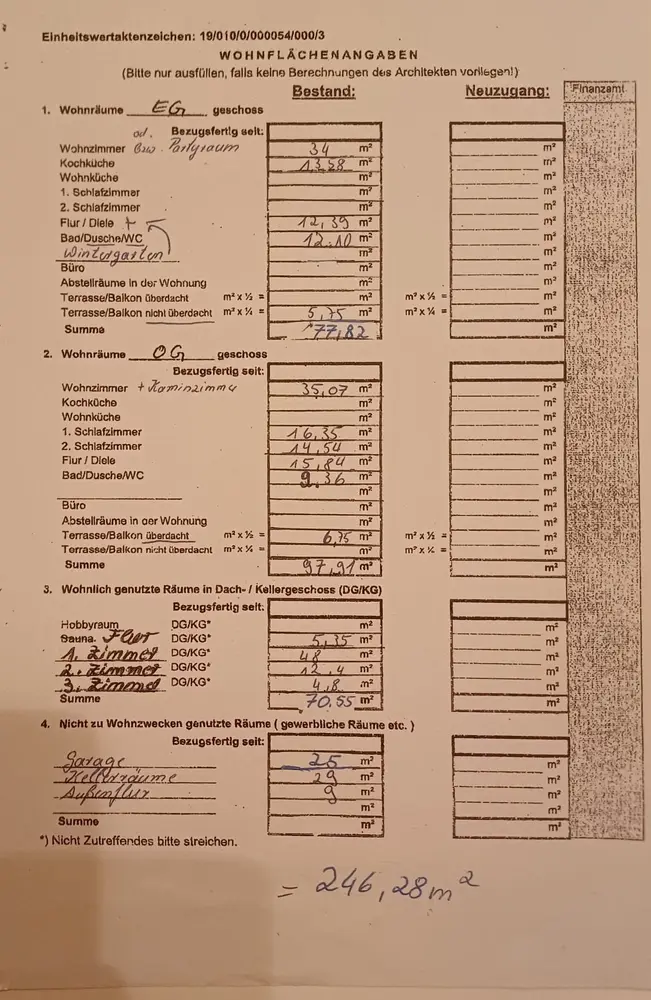 Einheitswertaktenzeichen: 19/010/0/000054/000/3
WOHNFLÄCHENANGABEN
(Bitte nur ausfüllen, falls keine Berechnungen des Architekten vorliegen!)
Bestand: Neuzugang: Finanzamt
1. Wohnräume EG geschoss
od. Bezugsfertig seit:
Wohnzimmer bzw. Partyraum 34 m² m²
Kochküche 13,58 m² m²
Wohnküche m² m²
1. Schlafzimmer m² m²
2. Schlafzimmer m² m²
Flur / Diele + 12,39 m² m²
Bad/Dusche/WC 12.10 m² m²
Wintergarten m² m²
Büro m² m²
Abstellräume in der Wohnung m² m²
Terrasse/Balkon überdacht m² x ½ = m² m² x ½ = m²
Terrasse/Balkon nicht überdacht m² x ¼ = 5,75 m² m² x ¼ = m²
Summe 77,82 m² m²
2. Wohnräume OG geschoss
Bezugsfertig seit:
Wohnzimmer + Kaminzimmer 35,07 m² m²
Kochküche m² m²
Wohnküche m² m²
1. Schlafzimmer 16,35 m² m²
2. Schlafzimmer 14,54 m² m²
Flur / Diele 15,84 m² m²
Bad/Dusche/WC 9.36 m² m²
m² m²
Büro m² m²
Abstellräume in der Wohnung m² m²
Terrasse/Balkon überdacht m² x ½ = 6,75 m² m² x ½ = m²
Terrasse/Balkon nicht überdacht m² x ¼ = m² m² x ¼ = m²
Summe 97,91 m² m²
3. Wohnlich genutzte Räume in Dach- / Kellergeschoss (DG/KG)
Bezugsfertig seit:
Hobbyraum DG/KG* m² m²
Sauna. Flur DG/KG* 5,35 m² m²
1. Zimmer DG/KG* 48 m² m²
2. Zimmer DG/KG* 12,4 m² m²
3. Zimmer DG/KG* 4,8 m² m²
Summe 70,55 m² m²
4. Nicht zu Wohnzwecken genutzte Räume ( gewerbliche Räume etc. )
Bezugsfertig seit:
Garage 25 m² m²
Kellerräume 29 m² m²
Außenflur 9 m² m²
m² m²
Summe m² m²
*) Nicht Zutreffendes bitte streichen.
= 246,28 m²